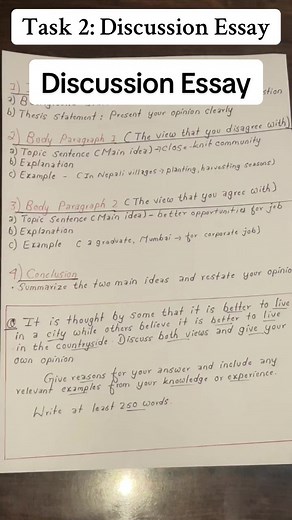 Task 2: Discussion Essay
Discussion Essay
1)
a)
b) Thesis statement: Present your opinion clearly
2) Body Paragraph 1 (The view that you disagree with)
a) Topic Sentence (Main idea) → Close-knit community
b) Explanation
c) Example - (In Nepali villages → planting, harvesting seasons)
3) Body Paragraph 2 (The view that you agree with)
a) Topic Sentence (Main idea) - better opportunities for job
b) Explanation
c) Example (a graduate, Mumbai → for corporate job)
4) Conclusion
• Summarize the two main ideas and restate your opinio
Q It is thought by some that it is better to live
in a city while others believe it is better to live
in the countryside. Discuss both views and give your
own opinion
Give reasons for your answer and include any
relevant examples from your knowledge or experience.
Write at least 250 words.